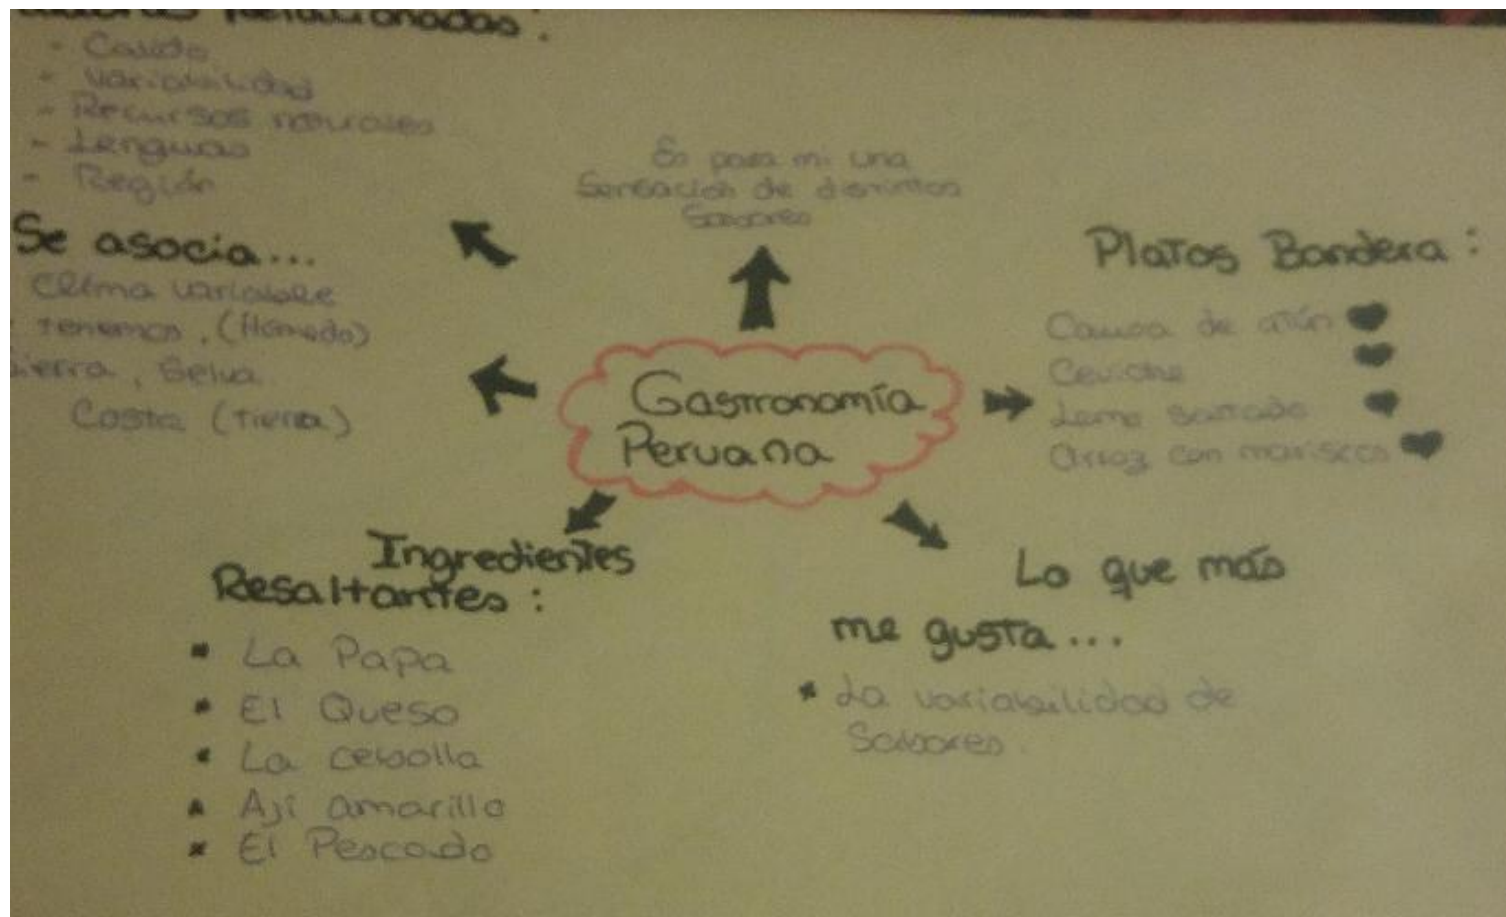 Relacionadas :
- Calido
- Variabilidad
- Recursos naturales
- Lenguas
- Región
Se asocia...
Clima variable
tenemos, (Húmedo)
Sierra, Selva
Costa (Tierra)
Es para mi una
Sensación de distintos
Sabores
Gastronomía
Peruana
Platos Bandera :
Causa de atún
Ceviche
Lomo saltado
Arroz con mariscos
Ingredientes
Resaltantes :
La Papa
El Queso
La cebolla
Ají amarillo
El Pescado
Lo que más
me gusta...
La variabilidad de
Sabores.